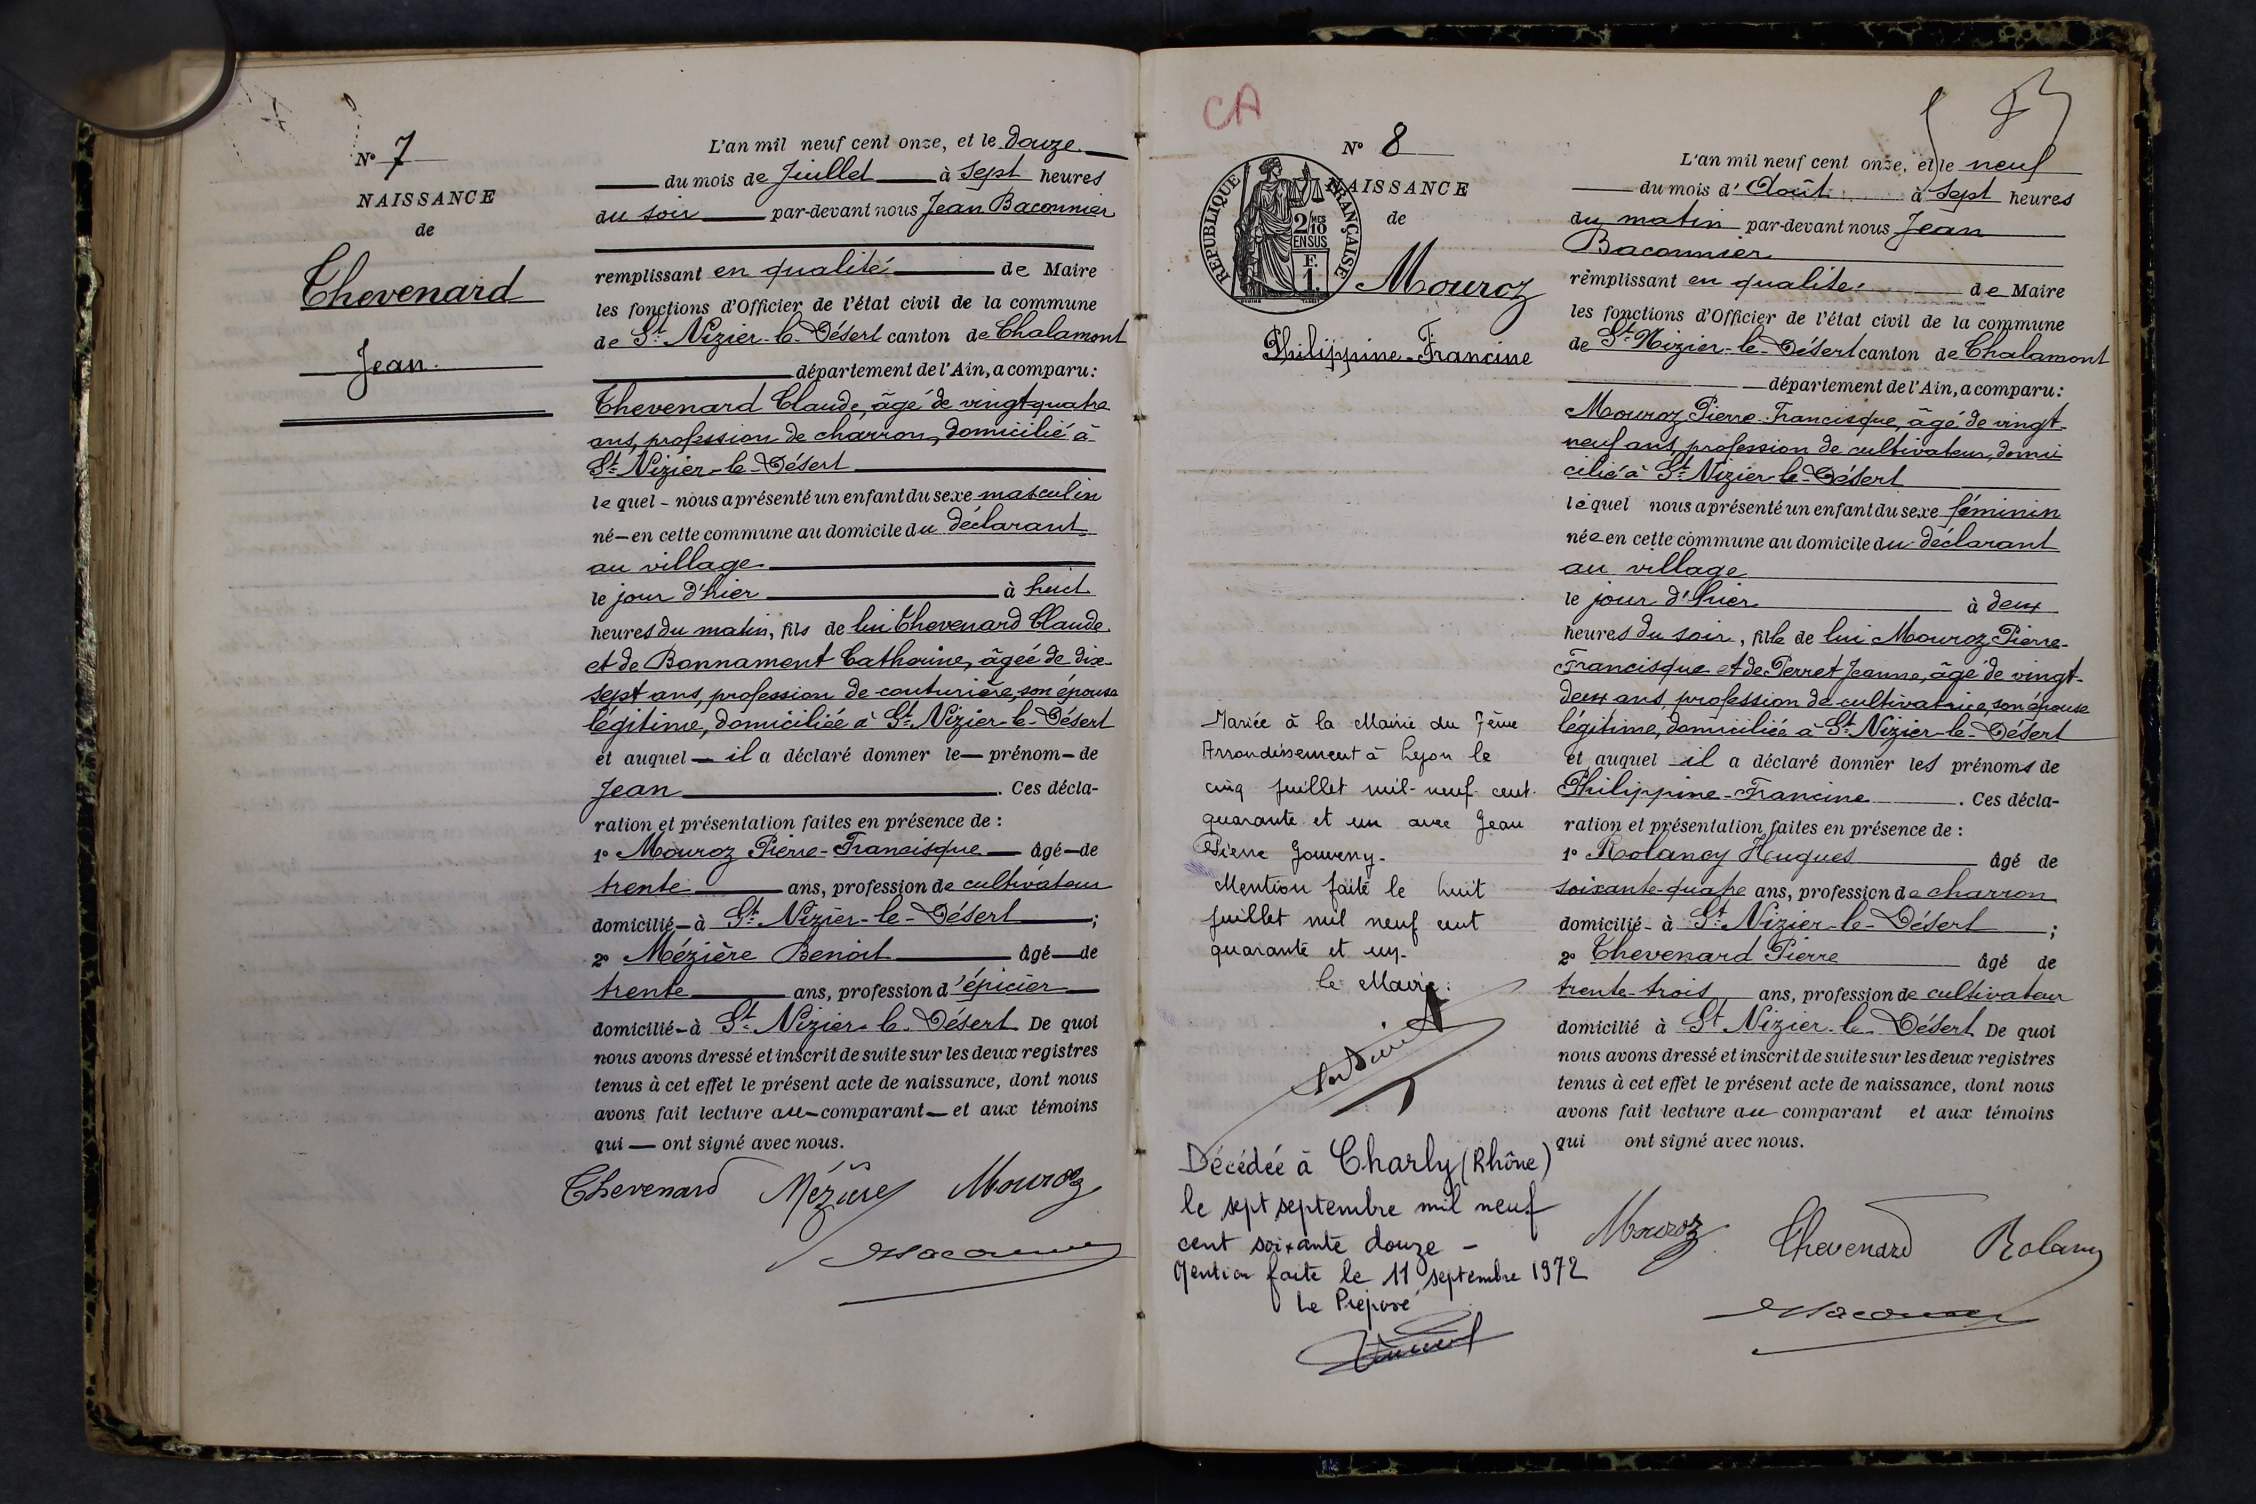 N° 7
NAISSANCE
de
Thevenard
Jean.
L'an mil neuf cent onze, et le douze
du mois de Juillet à sept heures
du soir par-devant nous Jean Baconnier
remplissant en qualité de Maire
les fonctions d'Officier de l'état civil de la commune
de St Nizier-le-Désert canton de Chalamont
département de l'Ain, a comparu:
Thevenard Claude, âgé de vingt-quatre
ans, profession de charron, domicilié à
St Nizier-le-Désert
lequel - nous a présenté un enfant du sexe masculin
né - en cette commune au domicile du déclarant
au village
le jour d'hier à huit
heures du matin, fils de lui Thevenard Claude
et de Bonnament Catherine, âgée de dix-
sept ans, profession de couturière, son épouse
légitime, domiciliée à St Nizier-le-Désert
et auquel - il a déclaré donner le - prénom - de
Jean. Ces décla-
ration et présentation faites en présence de :
1° Mouroz Pierre-Francisque - âgé - de
trente ans, profession de cultivateur
domicilié - à St Nizier-le-Désert ;
2° Mézière Benoit âgé - de
trente ans, profession d'épicier
domicilié - à St Nizier-le-Désert De quoi
nous avons dressé et inscrit de suite sur les deux registres
tenus à cet effet le présent acte de naissance, dont nous
avons fait lecture au - comparant - et aux témoins
qui - ont signé avec nous.
Thevenard Mézière Mouroz
Baconnier
CA
N° 8
NAISSANCE
de
RÉPUBLIQUE FRANÇAISE
2/10
MES
EN SUS
F.
1.
Mouroz
Philippine-Francine
L'an mil neuf cent onze, et le neuf
du mois d'Août à sept heures
du matin par-devant nous Jean
Baconnier
remplissant en qualité de Maire
les fonctions d'Officier de l'état civil de la commune
de St Nizier-le-Désert canton de Chalamont
département de l'Ain, a comparu:
Mouroz Pierre-Francisque, âgé de vingt-
neuf ans, profession de cultivateur, domi
cilié à St Nizier-le-Désert
lequel nous a présenté un enfant du sexe féminin
née en cette commune au domicile du déclarant
au village
le jour d'hier à deux
heures du soir, fille de lui Mouroz Pierre-
Francisque et de Perret Jeanne, âgé de vingt-
deux ans, profession de cultivatrice, son épouse
légitime, domiciliée à St Nizier-le-Désert
et auquel il a déclaré donner les prénoms de
Philippine-Francine. Ces décla-
ration et présentation faites en présence de :
1° Rolancy Hugues âgé de
soixante-quatre ans, profession de charron
domicilié - à St Nizier-le-Désert ;
2° Thevenard Pierre âgé de
trente-trois ans, profession de cultivateur
domicilié à St Nizier-le-Désert De quoi
nous avons dressé et inscrit de suite sur les deux registres
tenus à cet effet le présent acte de naissance, dont nous
avons fait lecture au comparant et aux témoins
qui ont signé avec nous.
Mouroz Thevenard Rolancy
Baconnier
Mariée à la Mairie du 7ème
Arrondissement à Lyon le
cinq juillet mil-neuf-cent
quarante et un avec Jean
Pierre Gouveny-
Mention faite le huit
juillet mil neuf cent
quarante et un-
le Maire:
Décédée à Charly (Rhône)
le sept septembre mil neuf
cent soixante douze -
Mention faite le 11 septembre 1972
Le Préposé